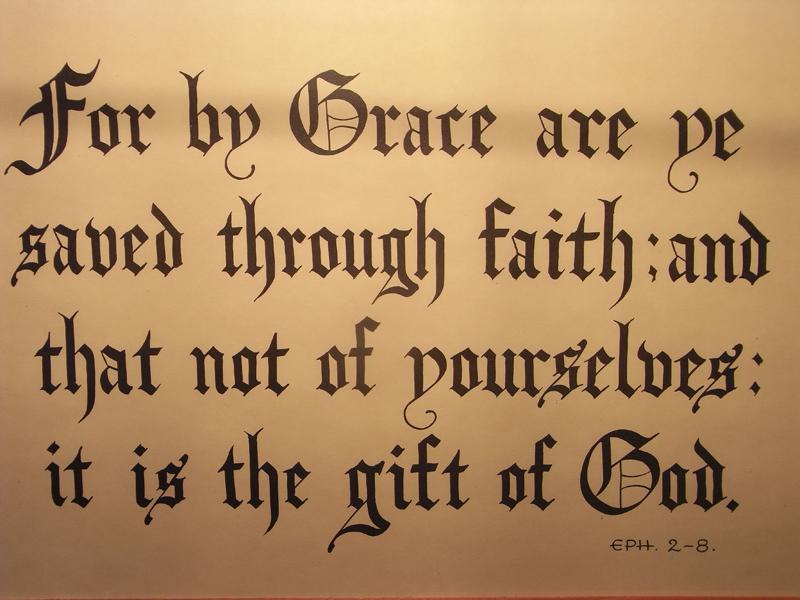 For by Grace are ye
saved through faith; and
that not of yourselves:
it is the gift of God.
EPH. 2-8.